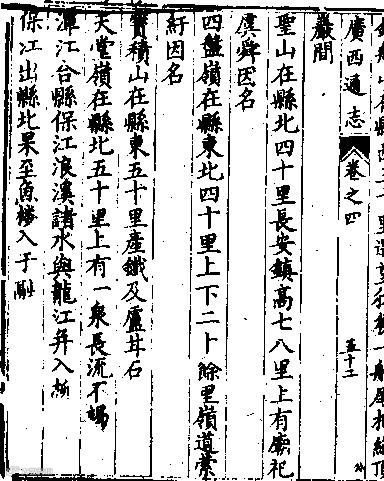 廣西通志
卷之四
五十二
嚴間
聖山在縣北四十里長安鎮高七八里上有廟祀
虞舜因名
四盤嶺在縣東北四十里上下二十餘里嶺道縈
紆因名
寶積山在縣東五十里產鐵及廬甘石
天堂嶺在縣北五十里上有一泉長流不竭
潭江合縣保江浪溪諸水與龍江并入
保江出縣北果至魚
入于融